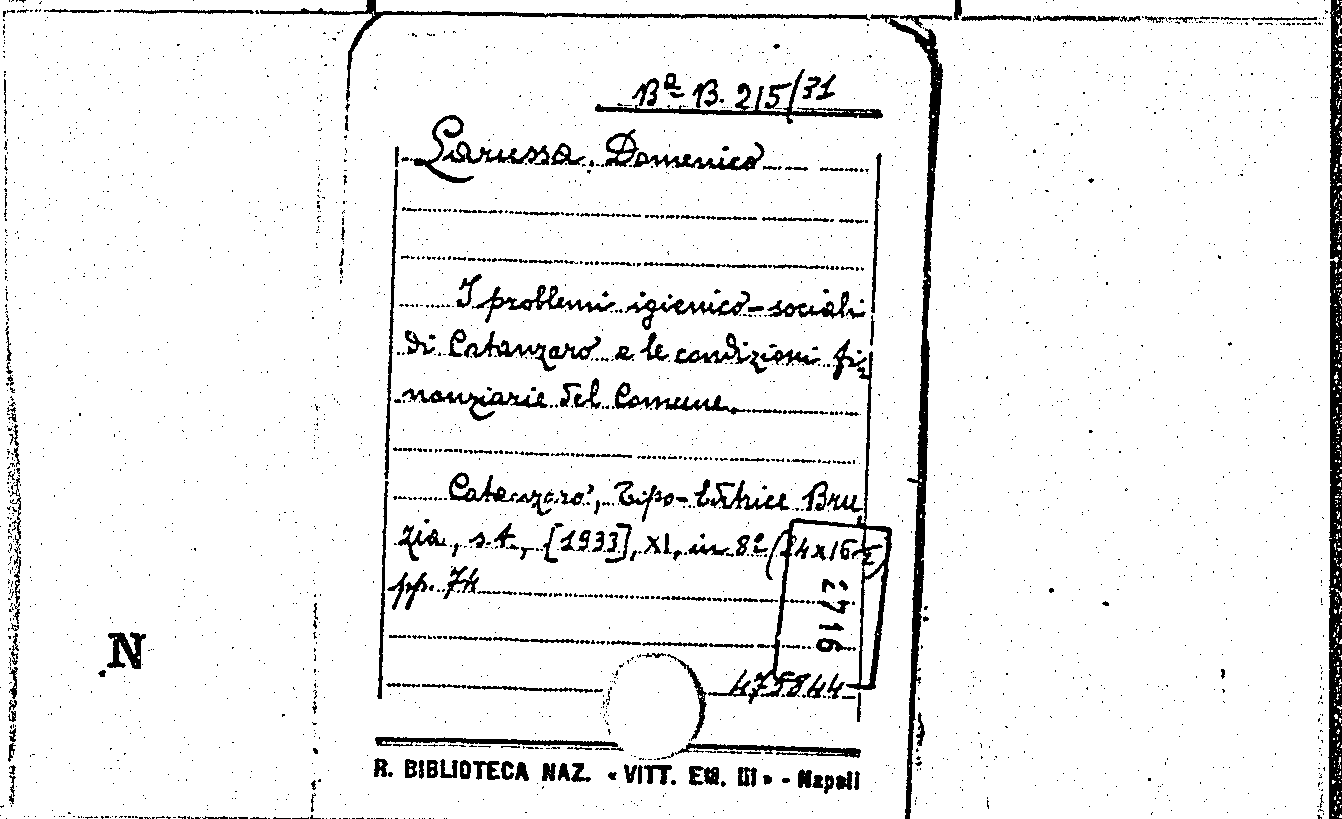 Bª B. 215/31
Larussa Domenico
I problemi igienico-sociali
di Catanzaro e le condizioni fi-
nanziarie del Comune.
Catanzaro, Tipo-Editrice Bru
zia, s.t., [1933], XI, in 8º (24x16
pp. 74
2716
475844
N
R. BIBLIOTECA NAZ. « VITT. EM. III » - Napoli